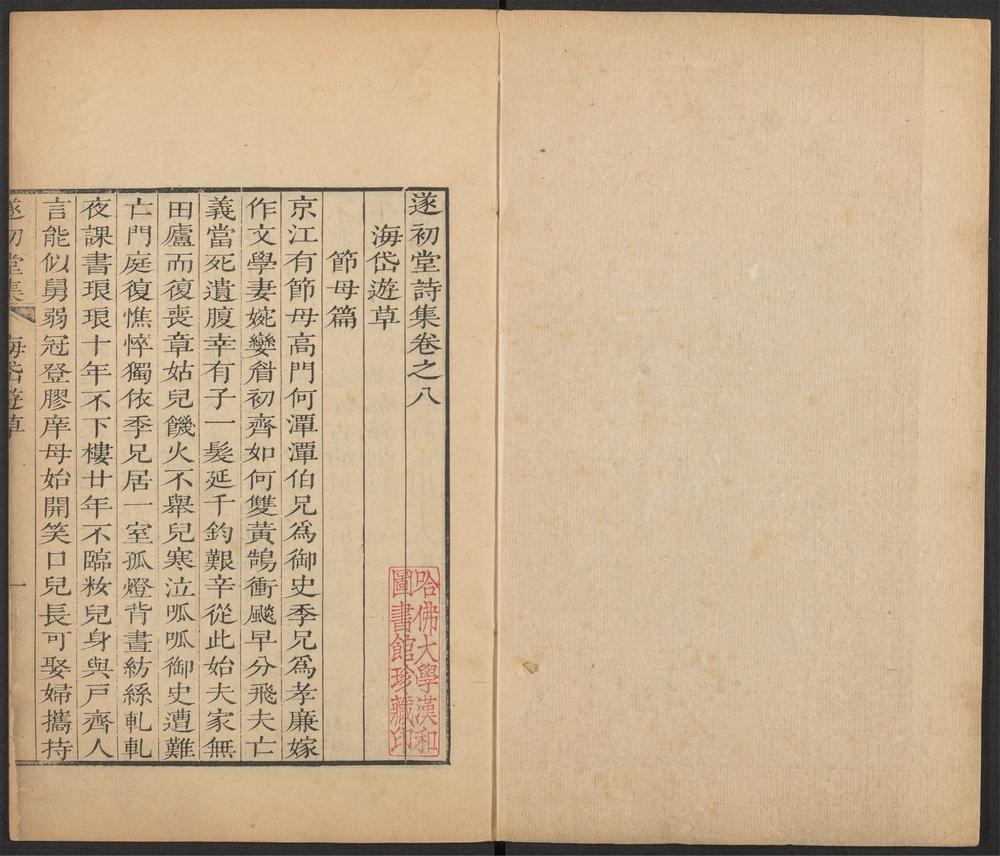 遂初堂詩集卷之八
海岱遊草
節母篇
京江有節母高門何潭潭伯兄爲御史季兄爲孝廉嫁
作文學妻婉孌眉初齊如何雙黃鵠衝飈早分飛夫亡
義當死遺腹幸有子一髮延千鈞艱辛從此始夫家無
田廬而復喪章姑兒饑火不舉兒寒泣呱呱御史遭難
亡門庭復憔悴獨依季兄居一室孤燈背晝紡絲軋軋
夜課書琅琅十年不下樓廿年不臨妝兒身與戶齊人
言能似舅弱冠登膠庠母始開笑口兒長可娶婦攜持
遂初堂集
海岱遊草
一
哈佛大學漢和
圖書館珍藏印